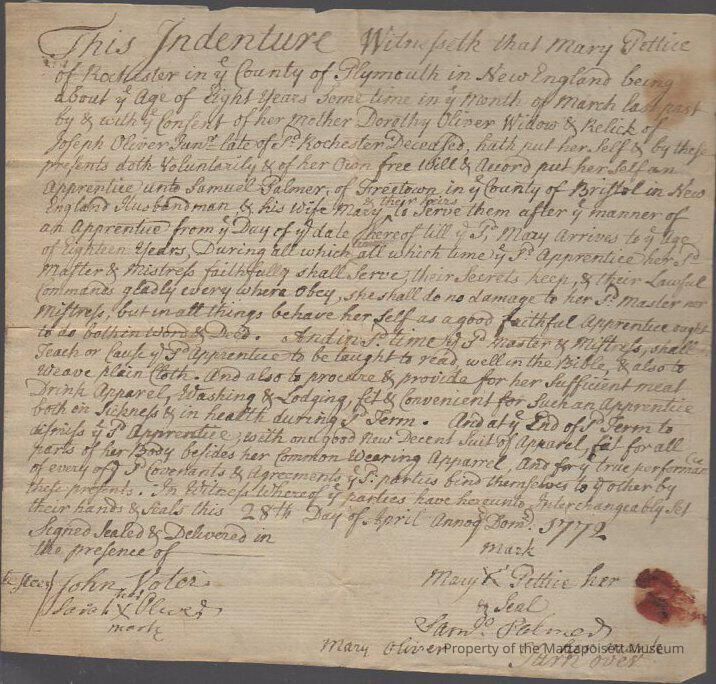 This Indenture Witnesseth that Mary Pettice
of Rochester in yͤ County of Plymouth in New England being
about yͤ Age of Eight Years Some time in yͤ Month of March last past
by & with yͤ Consent of her Mother Dorothy Oliver Widow & Relick of
Joseph Oliver Junʳ late of Sᵈ Rochester Deceased, hath put her Self & by these
presents doth Voluntarily & of her Own free Will & Accord put her Self an
Apprentice unto Samuel Palmer, of Freetown in yͤ County of Bristol in New
England Husbandman & his Wife Mary & their heirs to Serve them after yͤ manner of
an Apprentice from yͤ Day of yͤ date hereof till yͤ Sᵈ Mary Arrives to yͤ Age
of Eighteen Years, During all which all which time yͤ Sᵈ Apprentice her Sᵈ
Master & Mistress faithfully shall Serve, their Secrets keep, & their Lawful
Commands gladly every where Obey, She shall do no damage to her Sᵈ Master nor
Mistress, but in all things behave her Self as a good faithful Apprentice ought
to do both in Word & Deed. And in Sᵈ time yͤ Sᵈ Master & Mistress, shall
Teach or Cause yͤ Sᵈ Apprentice to be taught to read well in the Bible, & also to
Weave plain Cloth. And also to procure & provide for her Sufficient meat
Drink Apparel, Washing & Lodging, fit & Convenient for Such an Apprentice
both in Sickness & in health during Sᵈ Term. And at yͤ End of Sᵈ Term to
dismiss yͤ Sᵈ Apprentice, with one good New Decent Suit of Apparel, fit for all
parts of her Body besides her Common Wearing Apparrel, And for yͤ true performance
of every of Sᵈ Covenants & Agreements yͤ Sᵈ parties bind themselves to yͤ other by
these presents. In Witness Whereof yͤ parties have hereunto Interchangeably Set
their hands & Seals this 28th Day of April Annoq Dom: 1772
Signed Sealed & Delivered in
the presence of
mark
John
Mary X Pettice her
& Seal
Sarah X Oliver
mark
Samˡˡ Palmer
Mary Oliver
Property of the Mattapoisett Museum